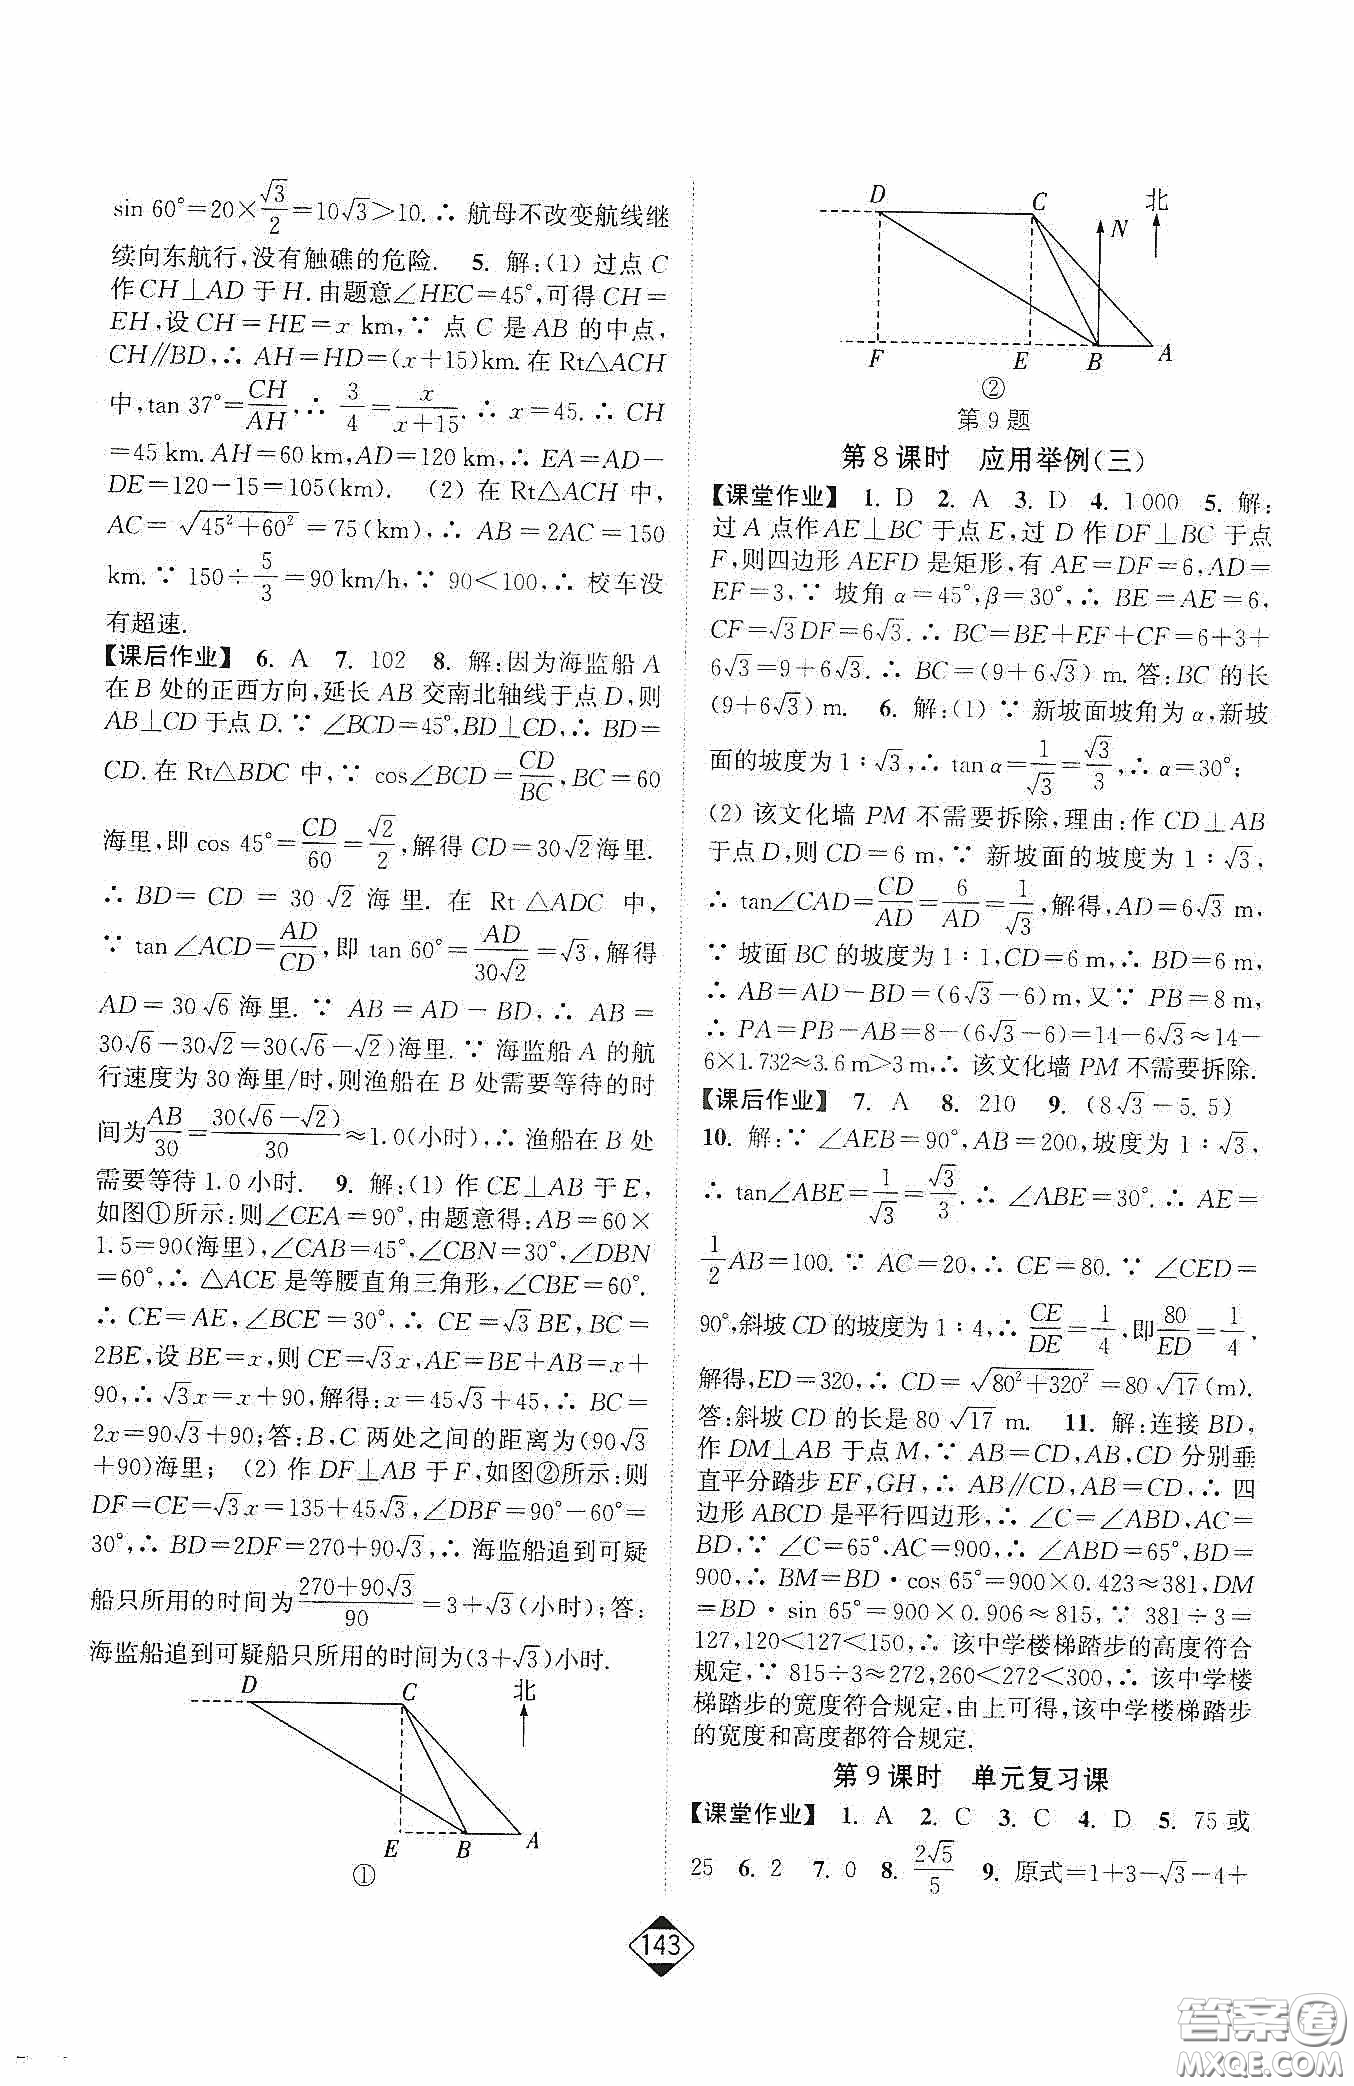 sin 60°=20×√3/2=10√3>10.∴ 航母不改变航线继
续向东航行,没有触礁的危险. 5. 解:(1) 过点 C
作 CH⊥AD 于 H.由题意∠HEC=45°,可得 CH=
EH,设 CH=HE=x km,∵ 点 C 是 AB 的中点,
CH∥BD,∴ AH=HD=(x+15)km.在 Rt△ACH
中,tan 37°=CH/AH,∴ 3/4=x/(x+15).∴ x=45.∴ CH
=45 km.AH=60 km,AD=120 km,∴ EA=AD-
DE=120-15=105(km). (2) 在 Rt△ACH 中,
AC=√(45²+60²)=75(km),∴ AB=2AC=150
km.∵ 150÷5/3=90 km/h,∵ 90<100,∴ 校车没
有超速.
【课后作业】 6. A 7. 102 8. 解:因为海监船 A
在 B 处的正西方向,延长 AB 交南北轴线于点 D,则
AB⊥CD 于点 D.∵ ∠BCD=45°,BD⊥CD,∴ BD=
CD.在 Rt△BDC 中,∵ cos∠BCD=CD/BC,BC=60
海里,即 cos 45°=CD/60=√2/2,解得 CD=30√2海里.
∴ BD= CD= 30 √2 海里.在 Rt △ADC 中,
∵ tan∠ACD=AD/CD,即 tan 60°=AD/(30√2)=√3,解得
AD=30√6海里.∵ AB=AD-BD,∴ AB=
30√6-30√2=30(√6-√2)海里.∵ 海监船 A 的航
行速度为 30 海里/时,则渔船在 B 处需要等待的时
间为AB/30=30(√6-√2)/30≈1.0(小时),∴ 渔船在 B 处
需要等待 1.0 小时. 9. 解:(1) 作 CE⊥AB 于 E,
如图①所示:则∠CEA=90°,由题意得:AB=60×
1.5=90(海里),∠CAB=45°,∠CBN=30°,∠DBN
=60°,∴ △ACE 是等腰直角三角形,∠CBE=60°.
∴ CE=AE,∠BCE=30°,∴ CE=√3BE,BC=
2BE,设 BE=x,则 CE=√3x,AE=BE+AB=x+
90,∴ √3x=x+90,解得:x=45√3+45,∴ BC=
2x=90√3+90;答:B,C 两处之间的距离为(90√3
+90)海里; (2) 作 DF⊥AB 于 F,如图②所示:则
DF=CE=√3x=135+45√3,∠DBF=90°-60°=
30°,∴ BD=2DF=270+90√3,∴ 海监船追到可疑
船只所用的时间为(270+90√3)/90=3+√3(小时);答:
海监船追到可疑船只所用的时间为(3+√3)小时.
D C 北
E B A
①
D C 北
N
F E B A
②
第 9 题
第 8 课时 应用举例(三)
【课堂作业】 1. D 2. A 3. D 4. 1 000 5. 解:
过 A 点作 AE⊥BC 于点 E,过 D 作 DF⊥BC 于点
F,则四边形 AEFD 是矩形,有 AE=DF=6,AD=
EF=3,∵ 坡角 α=45°,β=30°,∴ BE=AE=6,
CF=√3DF=6√3.∴ BC=BE+EF+CF=6+3+
6√3=9+6√3.∴ BC=(9+6√3) m.答:BC 的长
(9+6√3) m. 6. 解:(1) ∵ 新坡面坡角为 α,新坡
面的坡度为 1∶√3,∴ tan α=1/√3=√3/3,∴ α=30°;
(2) 该文化墙 PM 不需要拆除,理由:作 CD⊥AB
于点 D,则 CD=6 m,∵ 新坡面的坡度为 1∶√3,
∴ tan∠CAD=CD/AD=6/AD=1/√3,解得,AD=6√3 m,
∵ 坡面 BC 的坡度为 1∶1,CD=6 m,∴ BD=6 m,
∴ AB=AD-BD=(6√3-6)m,又∵ PB=8 m,
∴ PA=PB-AB=8-(6√3-6)=14-6√3≈14-
6×1.732≈3.6 m>3 m,∴ 该文化墙 PM 不需要拆除.
【课后作业】 7. A 8. 210 9. (8√3-5.5)
10. 解:∵ ∠AEB=90°,AB=200,坡度为 1∶√3,
∴ tan∠ABE=1/√3=√3/3.∴ ∠ABE=30°.∴ AE=
1/2AB=100.∵ AC=20,∴ CE=80.∵ ∠CED=
90°,斜坡 CD 的坡度为 1∶4,∴ CE/DE=1/4,即80/ED=1/4,
解得,ED=320,∴ CD=√(80²+320²)=80 √17(m).
答:斜坡 CD 的长是 80 √17 m. 11. 解:连接 BD,
作 DM⊥AB 于点 M,∵ AB=CD,AB,CD 分别垂
直平分踏步 EF,GH,∴ AB∥CD,AB=CD,∴ 四
边形 ABCD 是平行四边形,∴ ∠C=∠ABD,AC=
BD,∵ ∠C=65°,AC=900,∴ ∠ABD=65°,BD=
900,∴ BM=BD·cos 65°=900×0.423≈381,DM
=BD·sin 65°=900×0.906≈815,∵ 381÷3=
127,120<127<150,∴ 该中学楼梯踏步的高度符合
规定,∵ 815÷3≈272,260<272<300,∴ 该中学楼
梯踏步的宽度符合规定,由上可得,该中学楼梯踏步
的宽度和高度都符合规定.
第 9 课时 单元复习课
【课堂作业】 1. A 2. C 3. C 4. D 5. 75 或
25 6. 2 7. 0 8. 2√5/5 9. 原式=1+3-√3-4+
143
答案圈
MXQE.COM